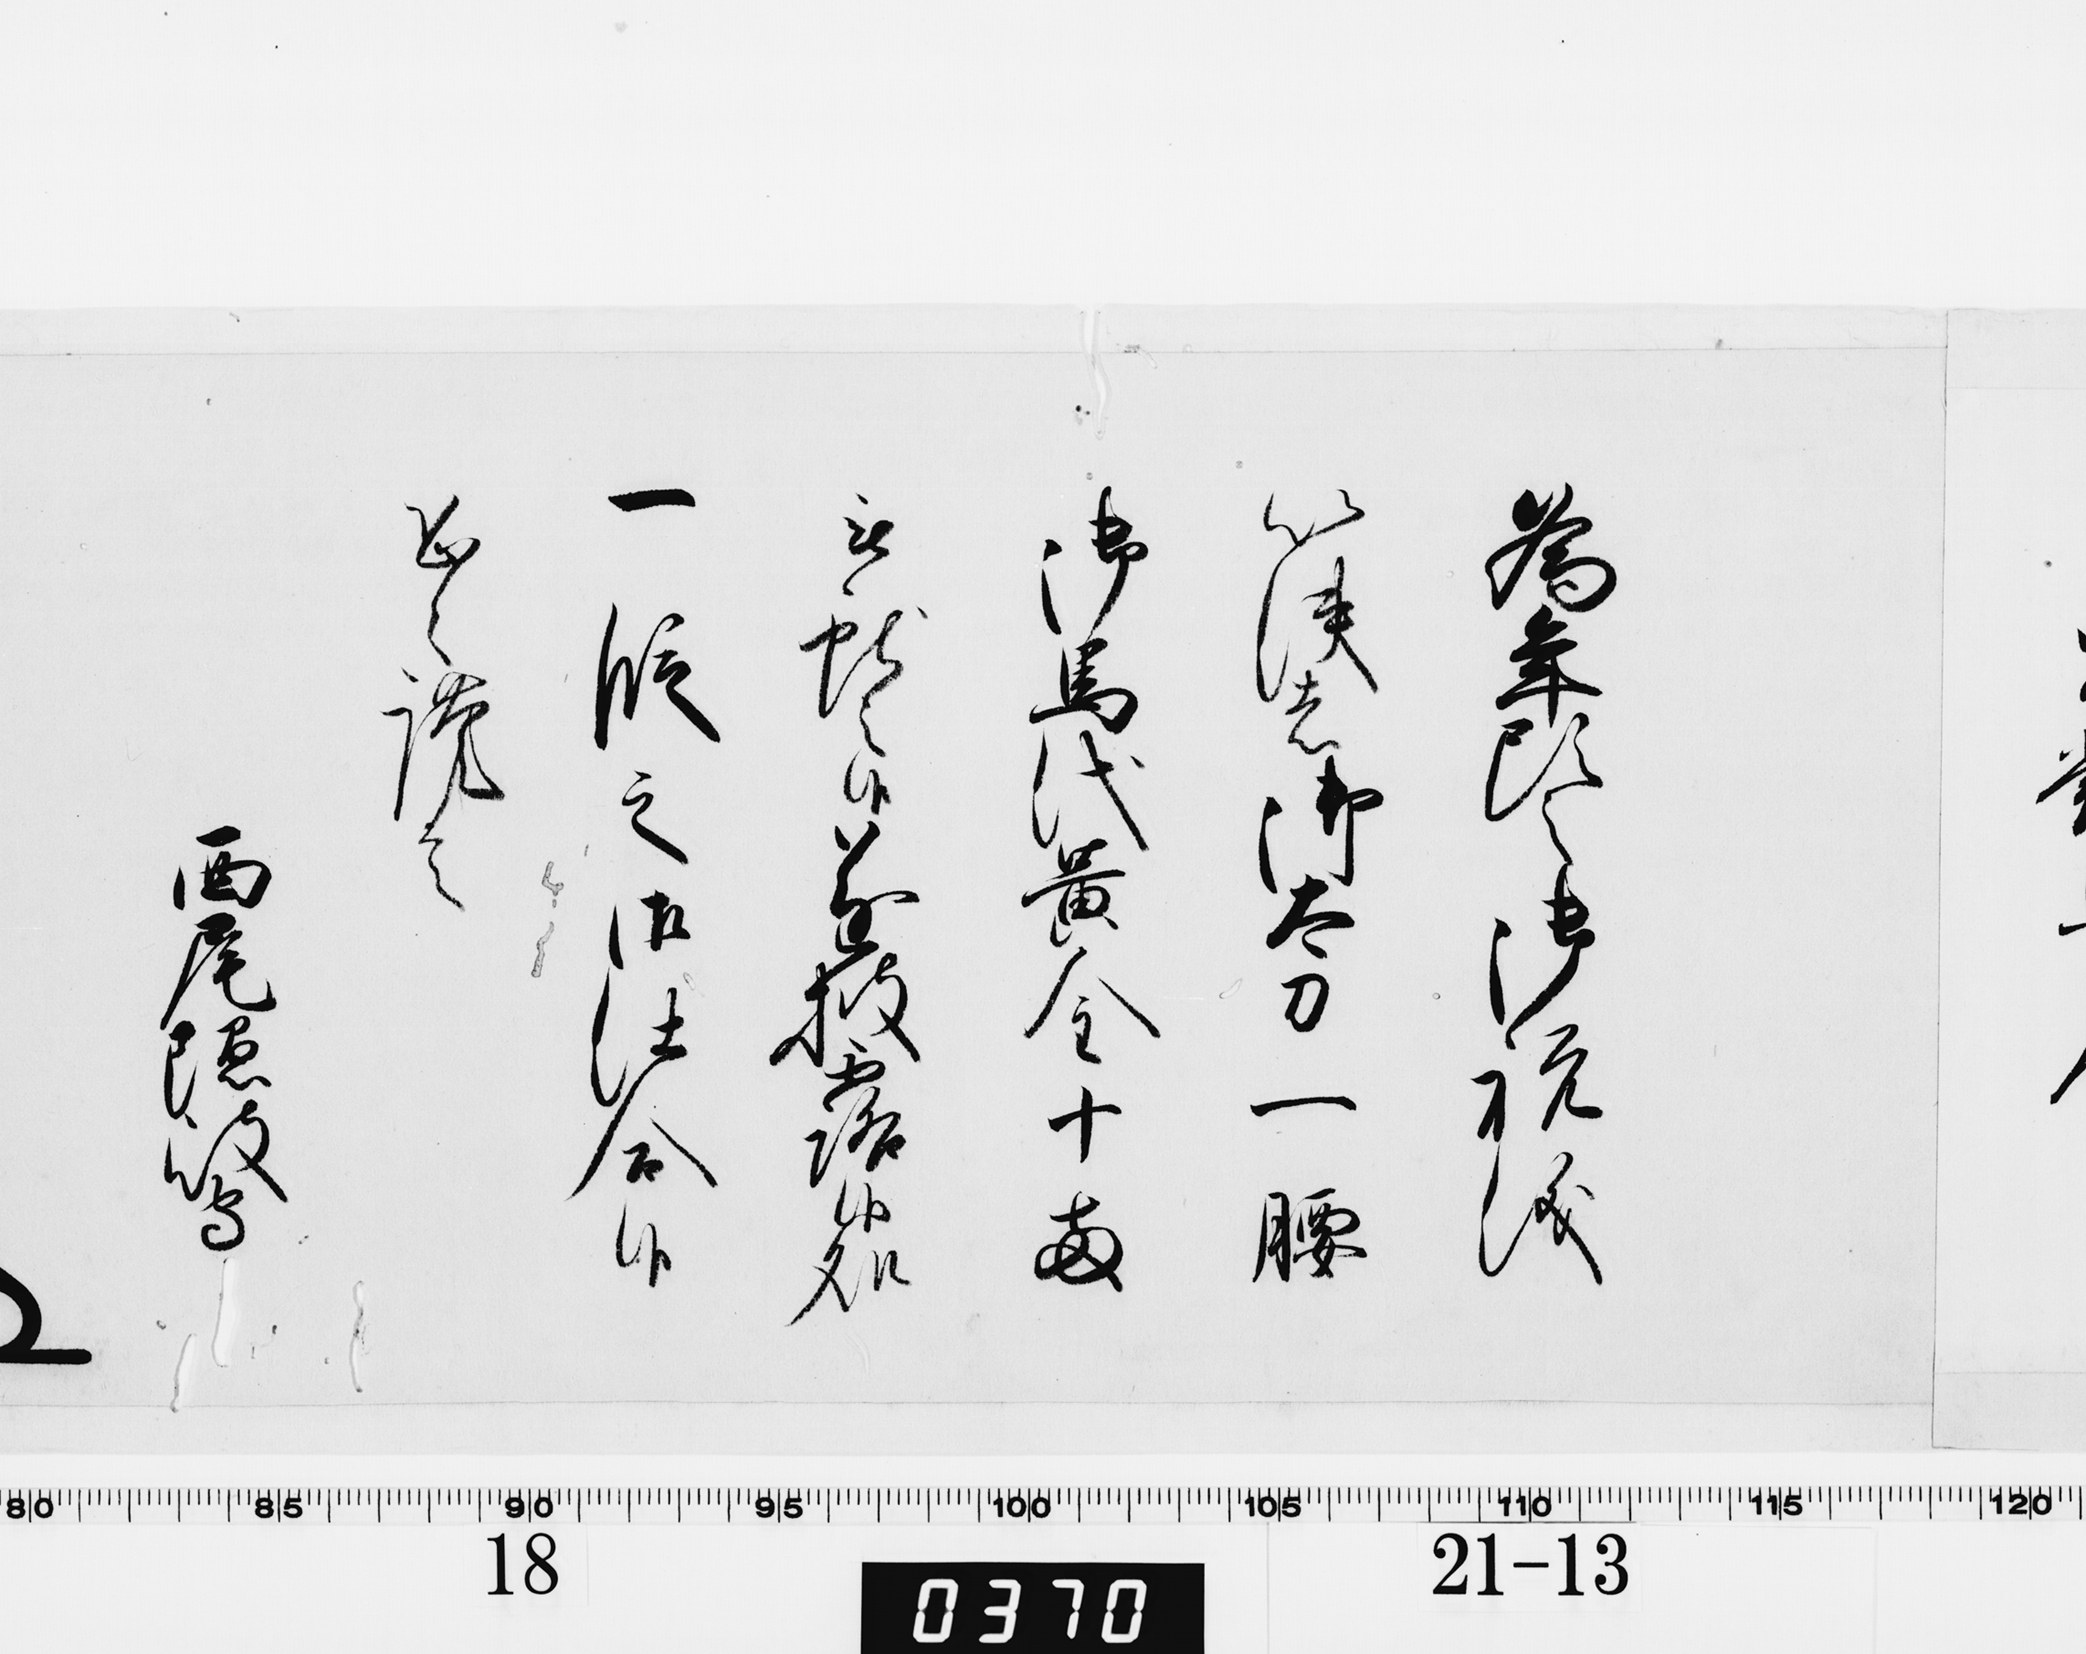 為年頭之御祝儀
以使者御太刀一腰
御馬代黄金十両
被献之候遂披露候処
一段之御仕合候
恐々謹言
西尾隠岐守
80 85 90 95 100 105 110 115 120
18
0370
21-13